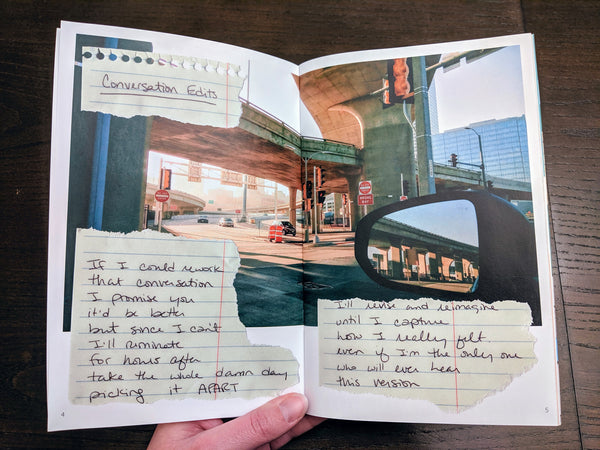 Conversation Edits
If I could rework
that conversation
I promise you
it'd be better
but since I can't
I'll ruminate
for hours after
take the whole damn day
picking it APART
I'll revise and reimagine
until I capture
how I really felt.
even if I'm the only one
who will ever hear
this version
4
5